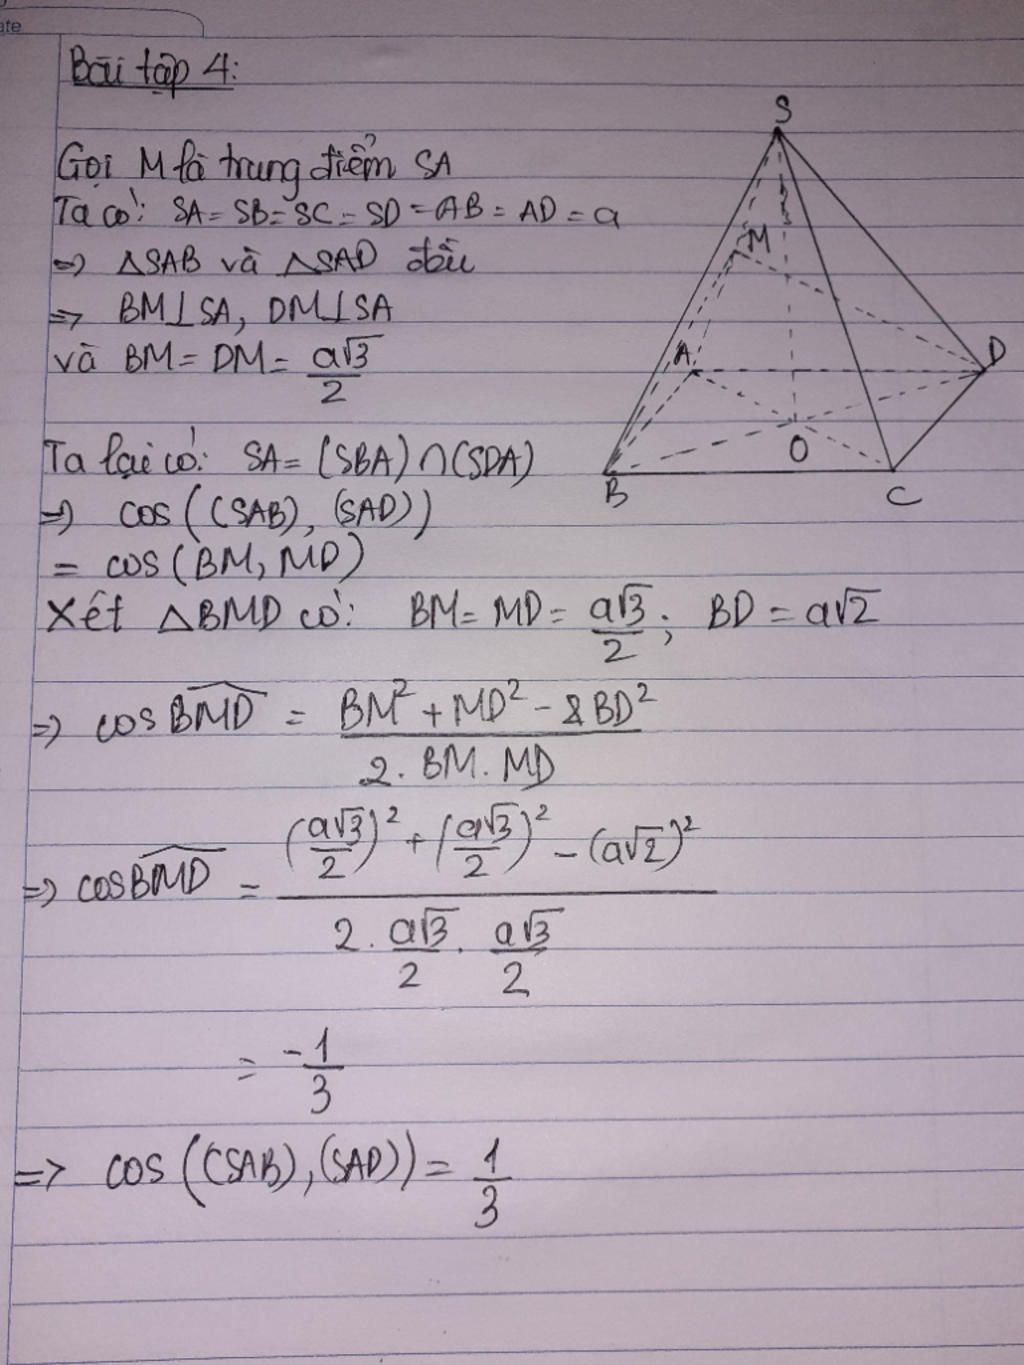 ate
Bài tập 4:
Gọi M là trung điểm SA
Ta có: SA = SB = SC = SD = AB = AD = a
=> △SAB và △SAD đều
=> BM⊥SA, DM⊥SA
và BM = DM = a√3/2
Ta lại có: SA = (SBA) ∩ (SDA)
=> cos ((SAB), (SAD))
= cos (BM, MD)
Xét △BMD có: BM = MD = a√3/2; BD = a√2
=> cos BMD = (BM² + MD² - BD²)/(2. BM. MD)
=> cos BMD = ((a√3/2)² + (a√3/2)² - (a√2)²)/(2. a√3/2. a√3/2)
= -1/3
=> cos ((SAB), (SAD)) = 1/3
S
M
A
D
O
B
C